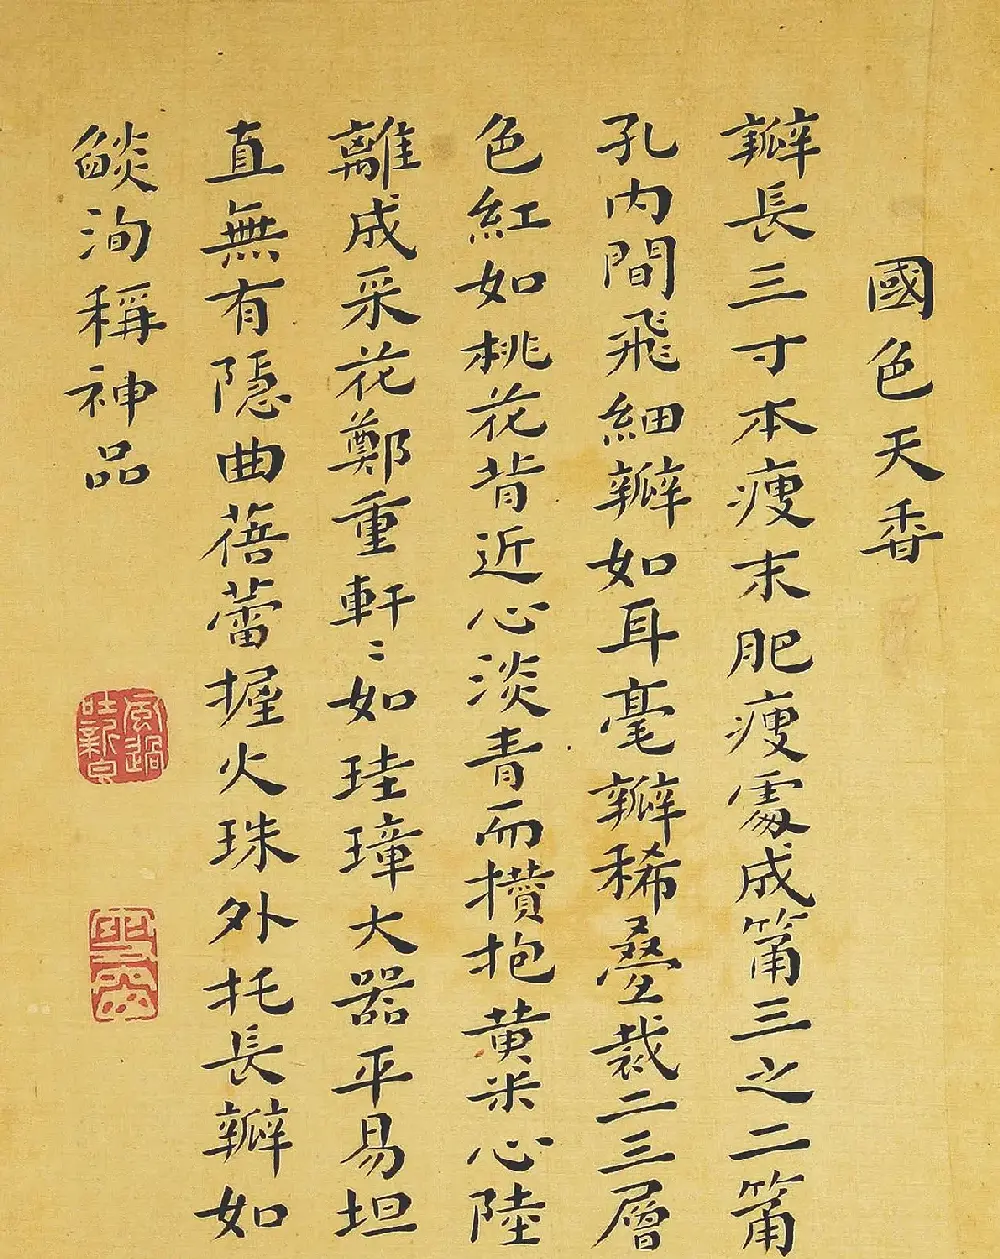 國色天香
瓣長三寸本瘦末肥瘦處成筩三之二筩
孔内間飛細瓣如耳毫瓣稀疊裁二三層
色紅如桃花背近心淡青而攢抱黄米心陸
離成采花鄭重軒〻如珪璋大器平易坦
直無有隠曲蓓蕾握火珠外托長瓣如
燄洵稱神品